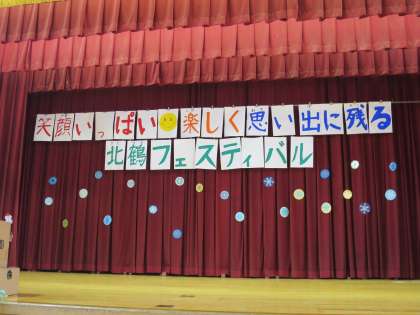 笑顔いっぱい楽しく思い出に残る
北鶴フェスティバル